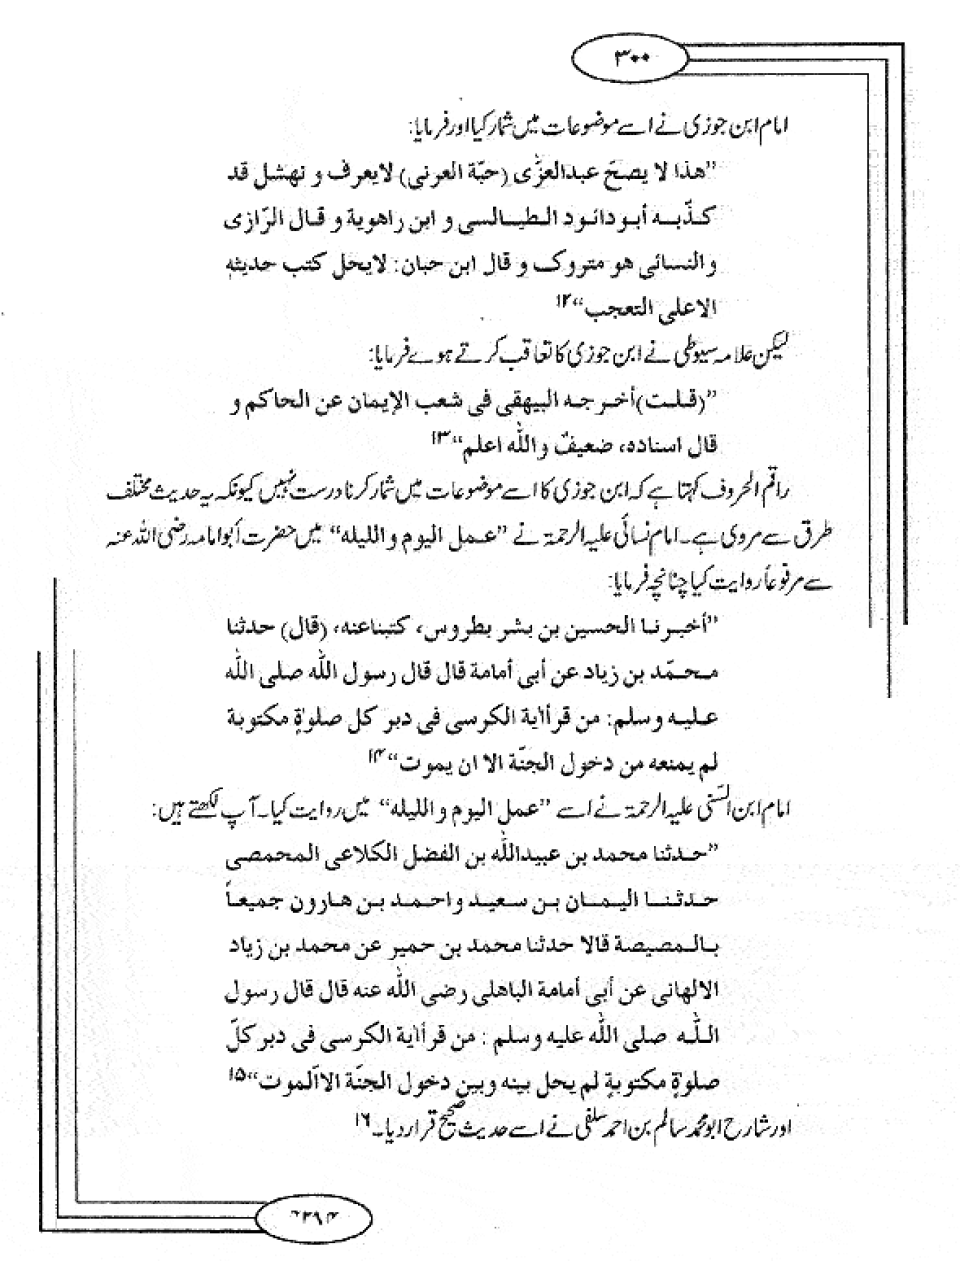 ۳۰۰
امام ابن جوزی نے اسے موضوعات میں شمار کیا اور فرمایا:
”هذا لا يصحّ عبدالعزّى (حبّة العرنى) لايعرف و نهشل قد
كذّبه أبودائود الطيالسى و ابن راهوية و قال الرّازى
والنسائى هو متروک و قال ابن حبان: لايحل كتب حديثه
الاعلى التعجب“۱۲
لیکن علامہ سیوطی نے ابن جوزی کا تعاقب کرتے ہوے فرمایا:
”(قلت)أخرجه البيهقى فى شعب الإيمان عن الحاكم و
قال اسناده، ضعيفٌ والله اعلم“۱۳
راقم الحروف کہتا ہے کہ ابن جوزی کا اسے موضوعات میں شمار کرنا درست نہیں کیونکہ یہ حدیث مختلف
طرق سے مروی ہے۔ امام نسائی علیہ الرحمۃ نے ”عمل اليوم والليله“ میں حضرت أبوامامہ رضی اللہ عنہ
سے مرفوعاً روایت کیا چنانچہ فرمایا:
”أخبرنا الحسين بن بشر بطروس، كتبناعنه، (قال) حدثنا
محمّد بن زياد عن أبى أمامة قال قال رسول الله صلى الله
عليه وسلم: من قرأاية الكرسى فى دبر كل صلوةٍ مكتوبة
لم يمنعه من دخول الجنّة الا ان يموت“۱۴
امام ابن السّنی علیہ الرحمۃ نے اسے ”عمل اليوم والليله“ میں روایت کیا۔ آپ لکھتے ہیں:
”حدثنا محمد بن عبيدالله بن الفضل الكلاعى المحمصى
حدثنا اليمان بن سعيد واحمد بن هارون جميعاً
بالمصيصة قالا حدثنا محمد بن حمير عن محمد بن زياد
الالهانى عن أبى أمامة الباهلى رضى الله عنه قال قال رسول
الله صلى الله عليه وسلم : من قرأاية الكرسى فى دبر كلّ
صلوةٍ مكتوبةٍ لم يحل بينه وبين دخول الجنّة الاالموت“۱۵
اور شارح ابومحمد سالم بن احمد سلفی نے اسے حدیث صحیح قرار دیا۔۱۶